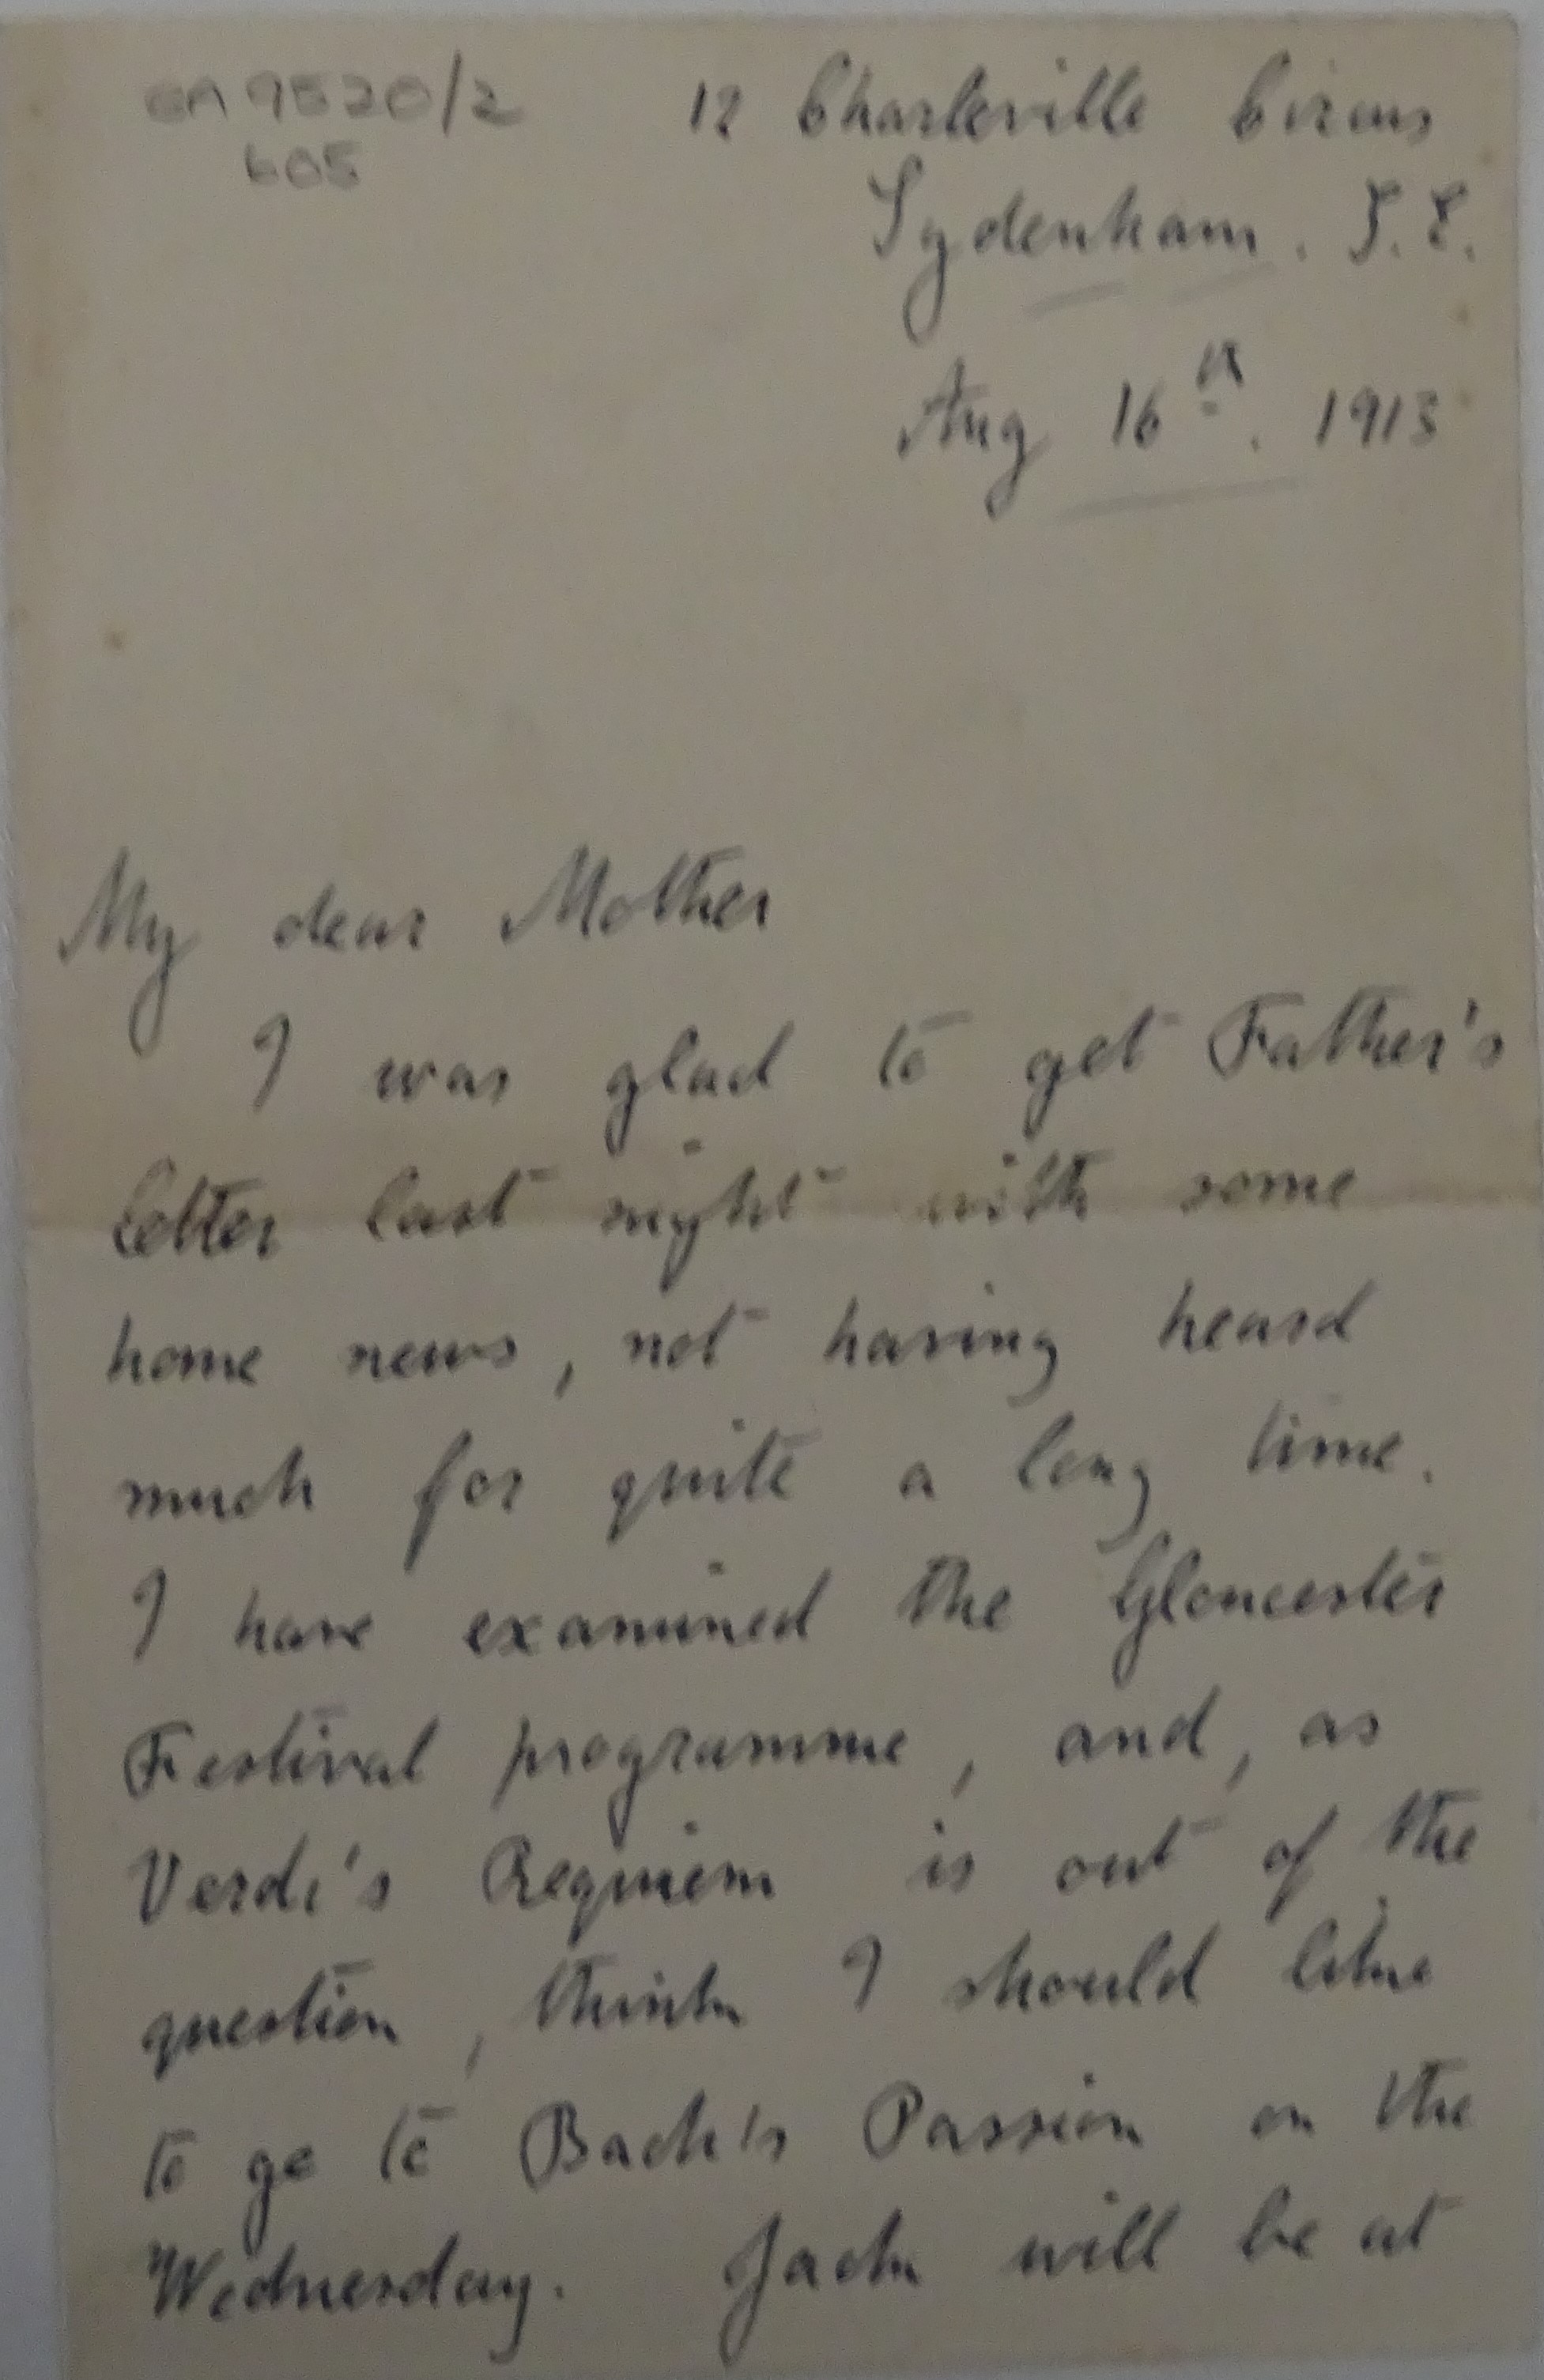 CA 9520/2
605
12 Charleville Circus
Sydenham. S.E.
Aug 16th. 1913
My dear Mother
I was glad to get Father's
letter last night with some
home news, not having heard
much for quite a long time.
I have examined the Gloucester
Festival programme, and, as
Verdi's Requiem is out of the
question, think I should like
to go to Bach's Passion on the
Wednesday. Jack will be at